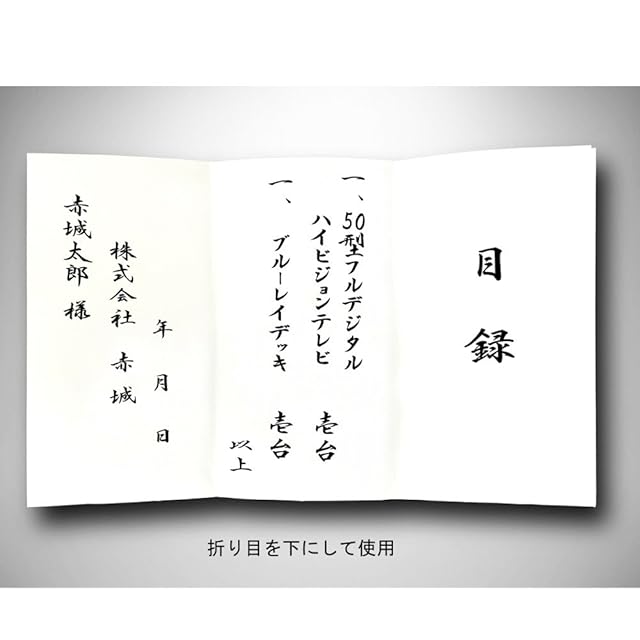 目録
一、50型フルデジタル
ハイビジョンテレビ 壱台
一、ブルーレイデッキ 壱台
以上
年 月 日
株式会社 赤城
赤城太郎 様
折り目を下にして使用